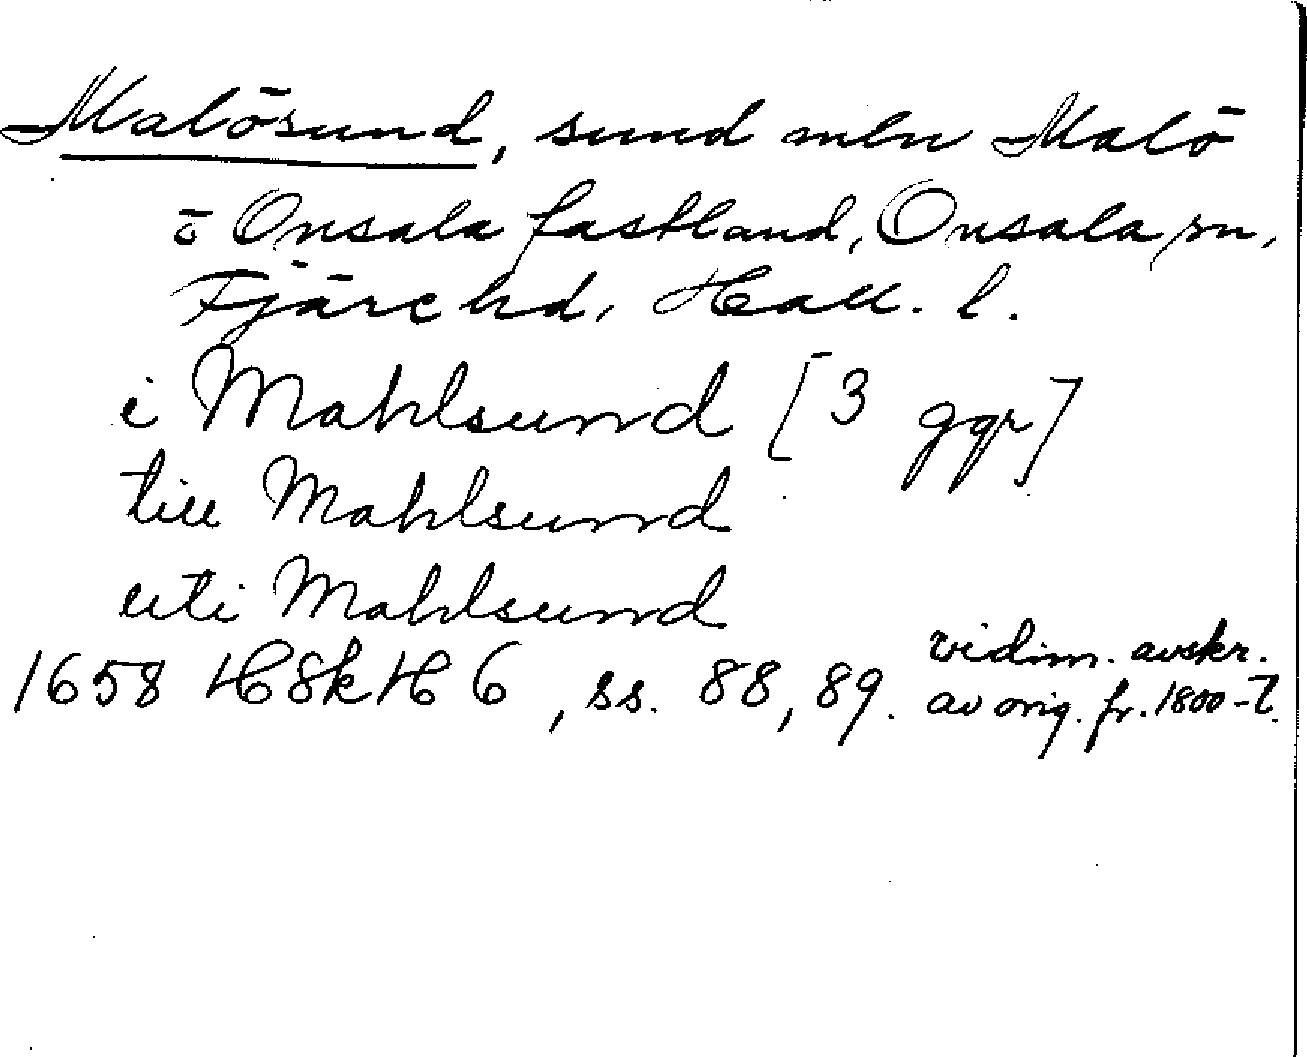 Malösund, sund mln Malö
o Onsala fastland, Onsala sn,
Fjäre hd, Hall. l.
i Mahlsund [3 ggr]
till Mahlsund
uti Mahlsund
1658 HSkH 6, ss. 88, 89. vidim. avskr. av orig. fr. 1800-t.